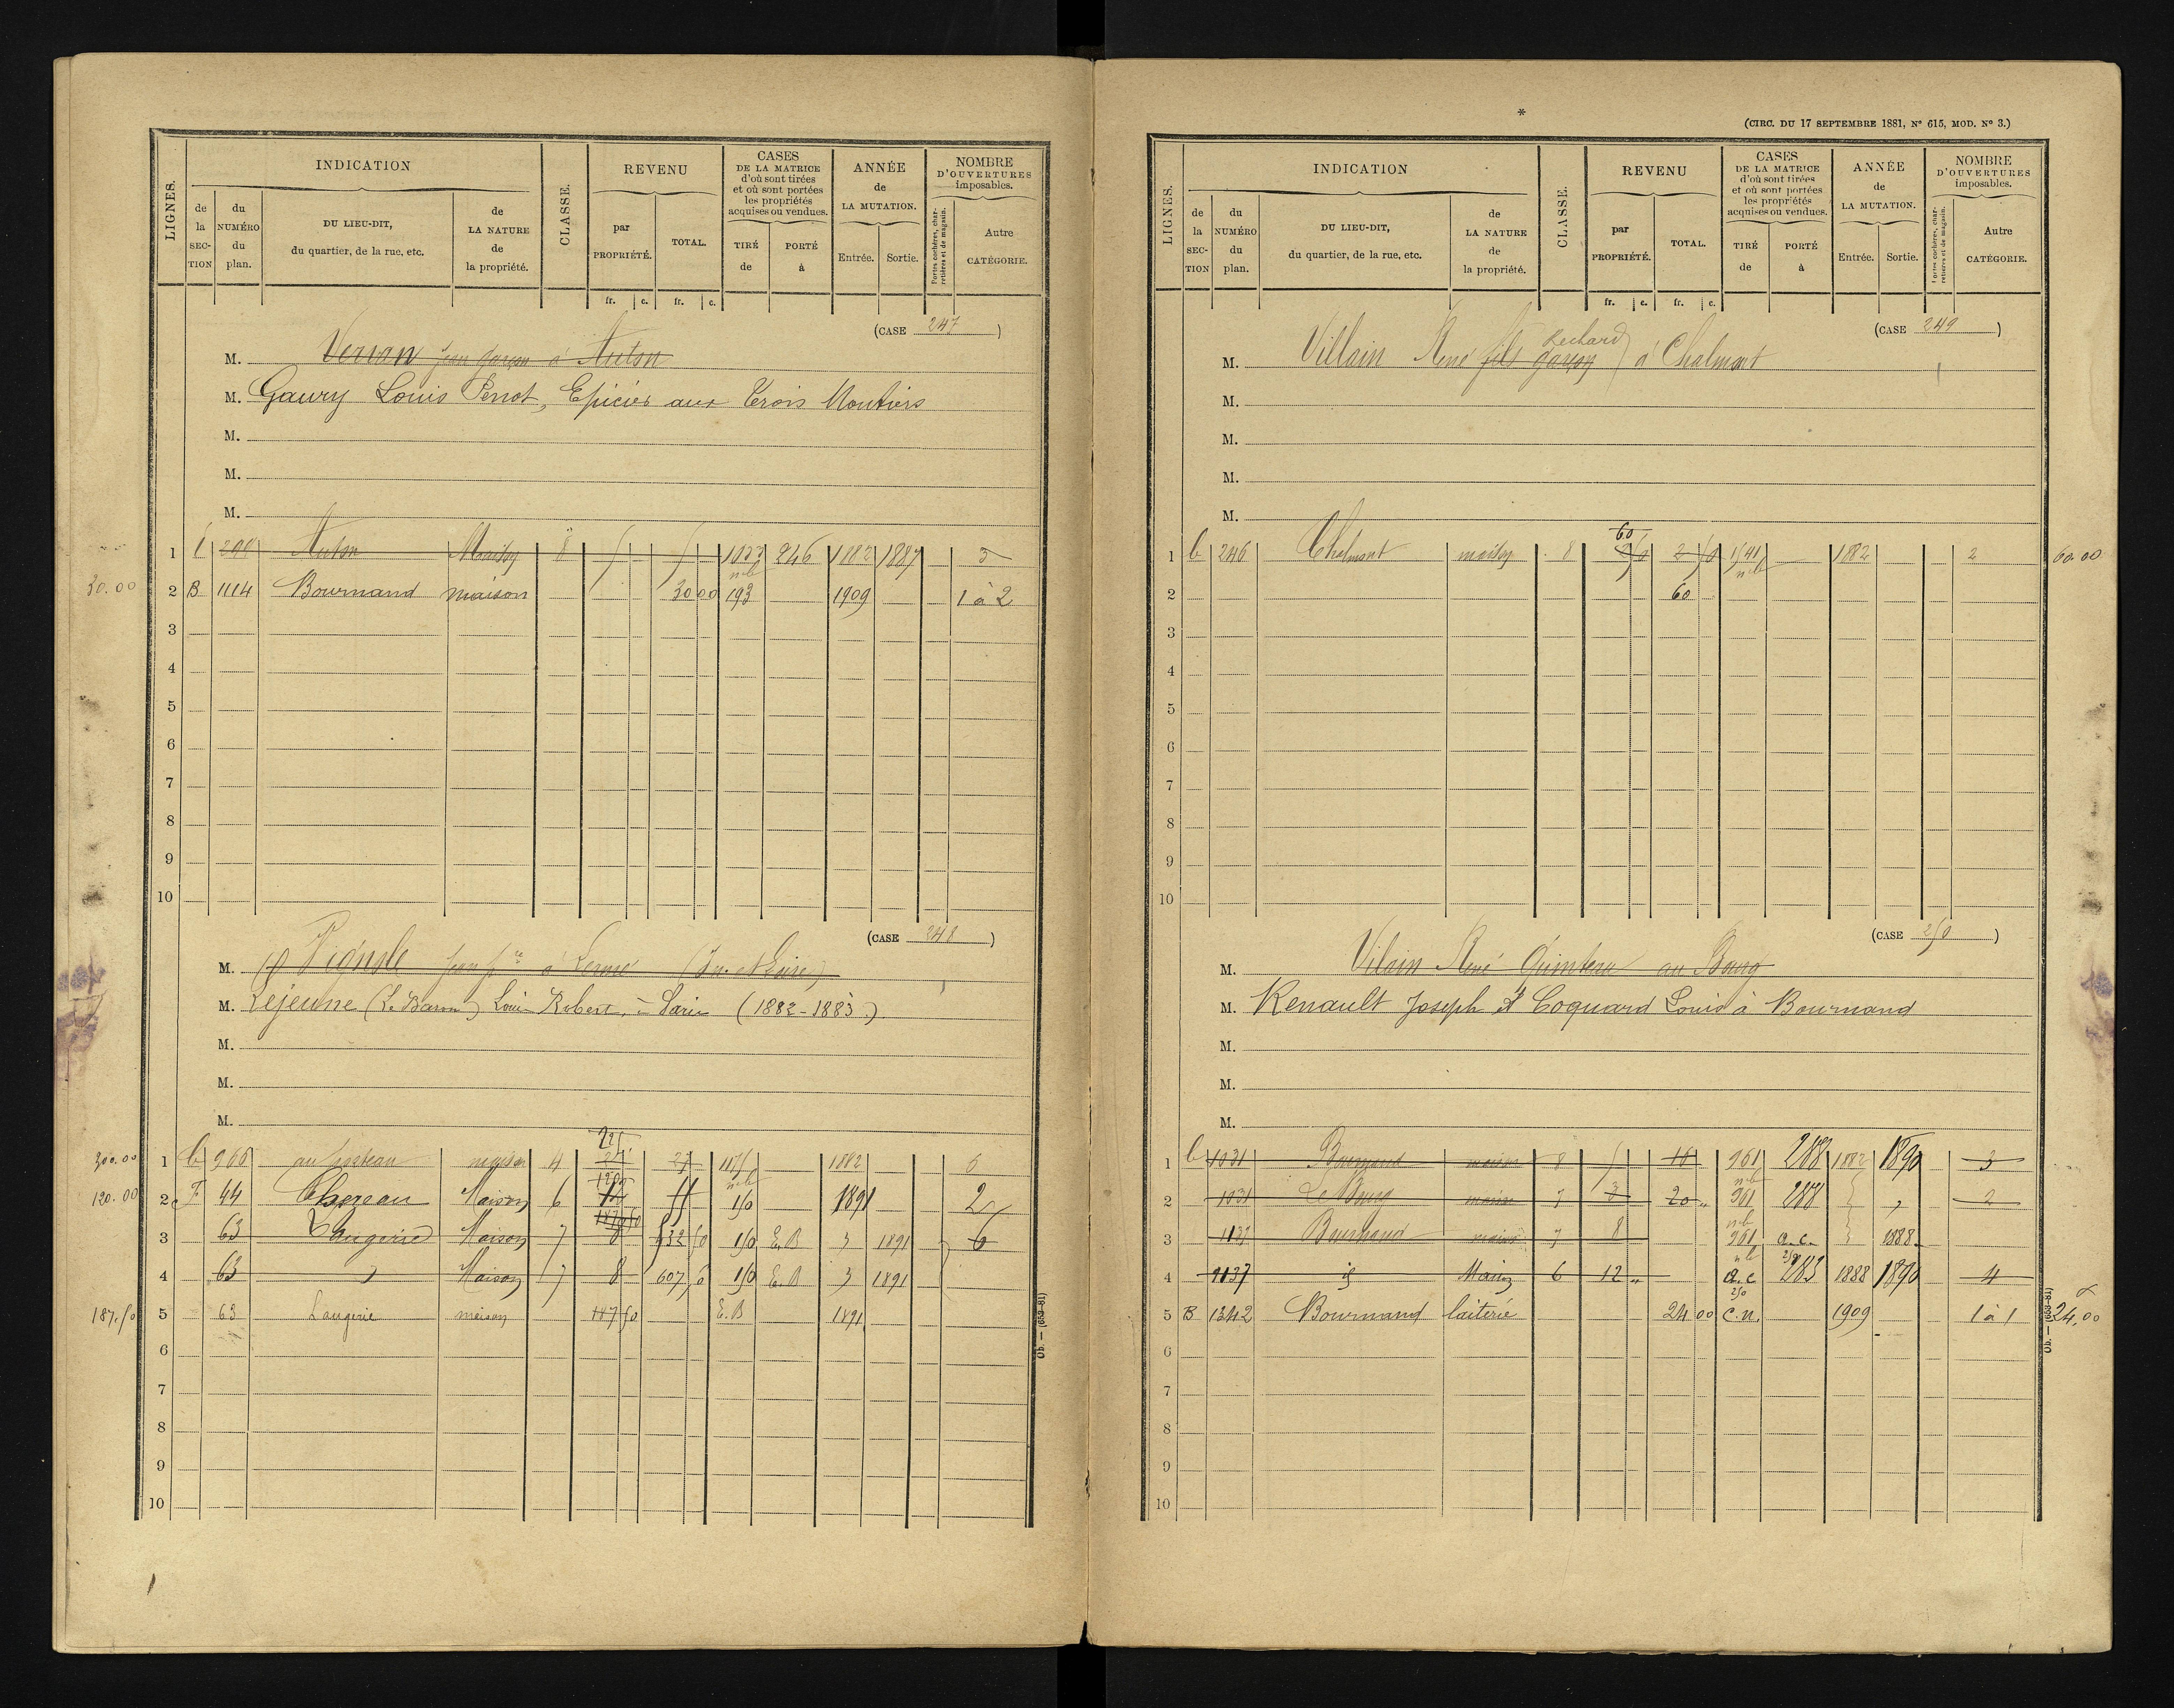 LIGNES.
INDICATION
de la SECTION
du NUMÉRO du plan.
DU LIEU-DIT, du quartier, de la rue, etc.
de LA NATURE de la propriété.
CLASSE.
REVENU
par PROPRIÉTÉ.
TOTAL.
fr. c. fr. c.
CASES DE LA MATRICE d'où sont tirées et où sont portées les propriétés acquises ou vendues.
TIRÉ de
PORTÉ à
ANNÉE de LA MUTATION.
Entrée. Sortie.
NOMBRE D'OUVERTURES imposables.
Portes cochères, charretières et de magasin.
Autre CATÉGORIE.
(CASE 247)
M. Verron Jean garçon à Auton
M. Gaury Louis Penot, Epicier aux Trois Moutiers
M.
M.
M.
1 Auton Maison 8 246 1882 1887 3
30.00 2 B 1114 Bournand maison 30 00 193 1909 1 à 2
3
4
5
6
7
8
9
10
(CASE 248)
M. Jean à Lerné
M. Lejeune (Le Baron) Louis Robert, à Paris (1882-1883)
M.
M.
M.
300.00 1 966 maison 4 27 1882 5
120.00 2 F 44 Chezeau Maison 6 12 150 1891 2
3 63 Laugerie Maison 7 8 150 E.B 1891 6
4 63 Maison 7 8 607 150 E.B 1891
187.50 5 63 Laugerie maison 187 50 E.B 1891
6
7
8
9
10
Ob. — (653-81)
*
(CIRC. DU 17 SEPTEMBRE 1881, Nº 615, MOD. Nº 3.)
LIGNES.
INDICATION
de la SECTION
du NUMÉRO du plan.
DU LIEU-DIT, du quartier, de la rue, etc.
de LA NATURE de la propriété.
CLASSE.
REVENU
par PROPRIÉTÉ.
TOTAL.
fr. c. fr. c.
CASES DE LA MATRICE d'où sont tirées et où sont portées les propriétés acquises ou vendues.
TIRÉ de
PORTÉ à
ANNÉE de LA MUTATION.
Entrée. Sortie.
NOMBRE D'OUVERTURES imposables.
Portes cochères, charretières et de magasin.
Autre CATÉGORIE.
(CASE 249)
M. Villain René fils garçon à Chalmont
M.
M.
M.
M.
60
1 246 Chalmont maison 8 1541 1882 2 60.00
2 60
3
4
5
6
7
8
9
10
(CASE 250)
M. Vilain René Quinteau au Bourg
M. Renault Joseph et Coquard Louis à Bournand
M.
M.
M.
1 1031 Bournand maison 8 5 961 288 1882 1890 3
2 1031 Le Bourg maison 7 3 20 961 288 2
3 1137 Bournand maison 7 8 961 a.c. 1888
4 1137 id Maison 6 12 a.c 283 1888 1890 4
5 B 1342 Bournand laiterie 24 00 C.n. 1909 1 à 1 24.00
6
7
8
9
10
Ob. — (653-81)